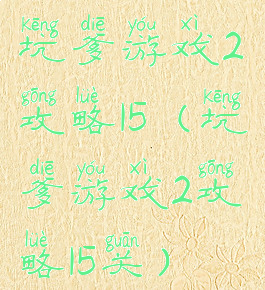 kēng diē yóu xì
坑爹游戏2
gōng luè kēng
攻略15（坑
diē yóu xì gōng
爹游戏2攻
luè guān
略15关）